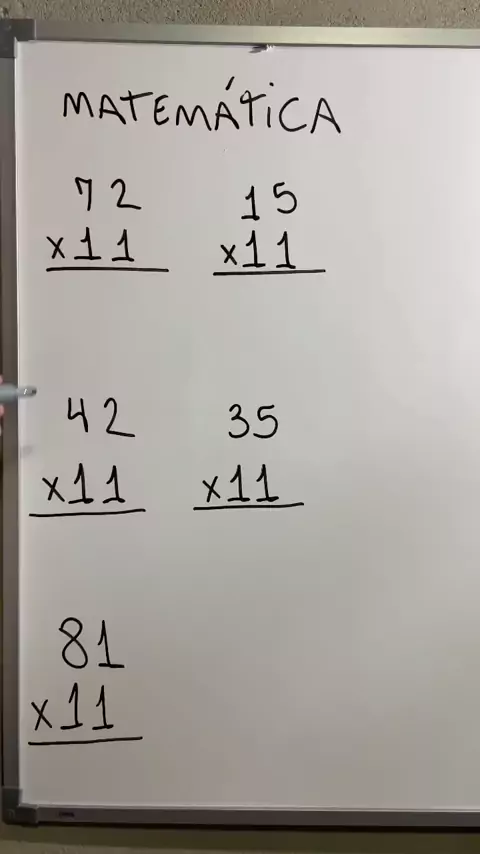 MATEMÁTICA
72 15
x11 x11
42 35
x11 x11
81
x11